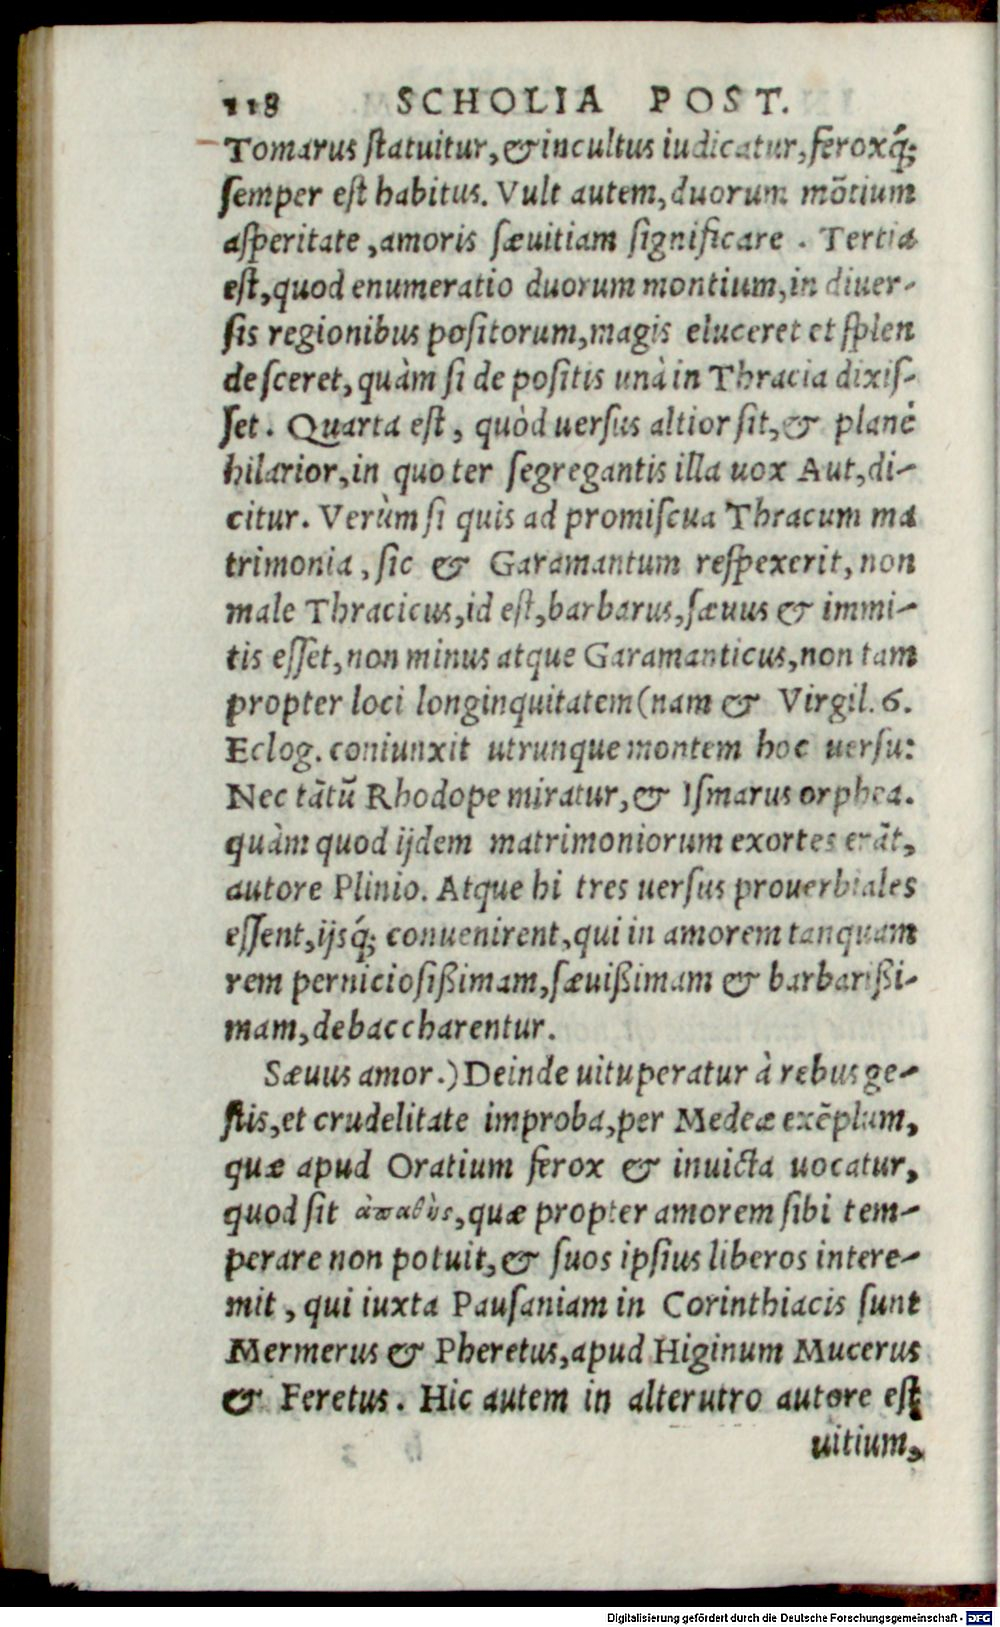 118 SCHOLIA POST.
Tomarus ſtatuitur, & incultus iudicatur, feroxq́;
ſemper eſt habitus. Vult autem, duorum mõtium
aſperitate, amoris ſæuitiam ſignificare. Tertia
eſt, quod enumeratio duorum montium, in diuer-
ſis regionibus poſitorum, magis eluceret et ſplen
deſceret, quàm ſi de poſitis unà in Thracia dixiſ-
ſet. Quarta eſt, quòd uerſus altior ſit, & planè
hilarior, in quo ter ſegregantis illa uox Aut, di-
citur. Verùm ſi quis ad promiſcua Thracum ma
trimonia, ſic & Garamantum reſpexerit, non
male Thracicus, id eſt, barbarus, ſæuus & immi-
tis eſſet, non minus atque Garamanticus, non tam
propter loci longinquitatem (nam & Virgil. 6.
Eclog. coniunxit utrunque montem hoc uerſu:
Nec tãtũ Rhodope miratur, & Iſmarus orphea.
quàm quod ijdem matrimoniorum exortes erãt,
autore Plinio. Atque hi tres uerſus prouerbiales
eſſent, ijsq́; conuenirent, qui in amorem tanquam
rem pernicioſißimam, ſæuißimam & barbarißi-
mam, debaccharentur.
Sæuus amor.) Deinde uituperatur à rebus ge-
ſtis, et crudelitate improba, per Medeæ exẽplum,
quæ apud Oratium ferox & inuicta uocatur,
quod ſit ἀπαθὴς, quæ propter amorem ſibi tem-
perare non potuit, & ſuos ipſius liberos intere-
mit, qui iuxta Pauſaniam in Corinthiacis ſunt
Mermerus & Pheretus, apud Higinum Mucerus
& Feretus. Hic autem in alterutro autore eſt
uitium,
Digitalisierung gefördert durch die Deutsche Forschungsgemeinschaft - DFG